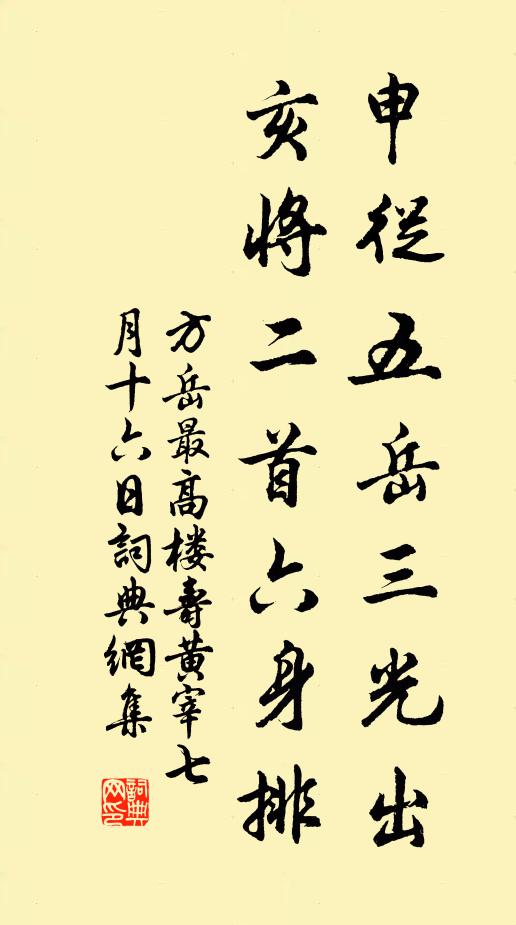 申從五岳三光出
亥將二首六身排
方岳最高楼壽黄宰七
月十六日詞典網集
詞典网印